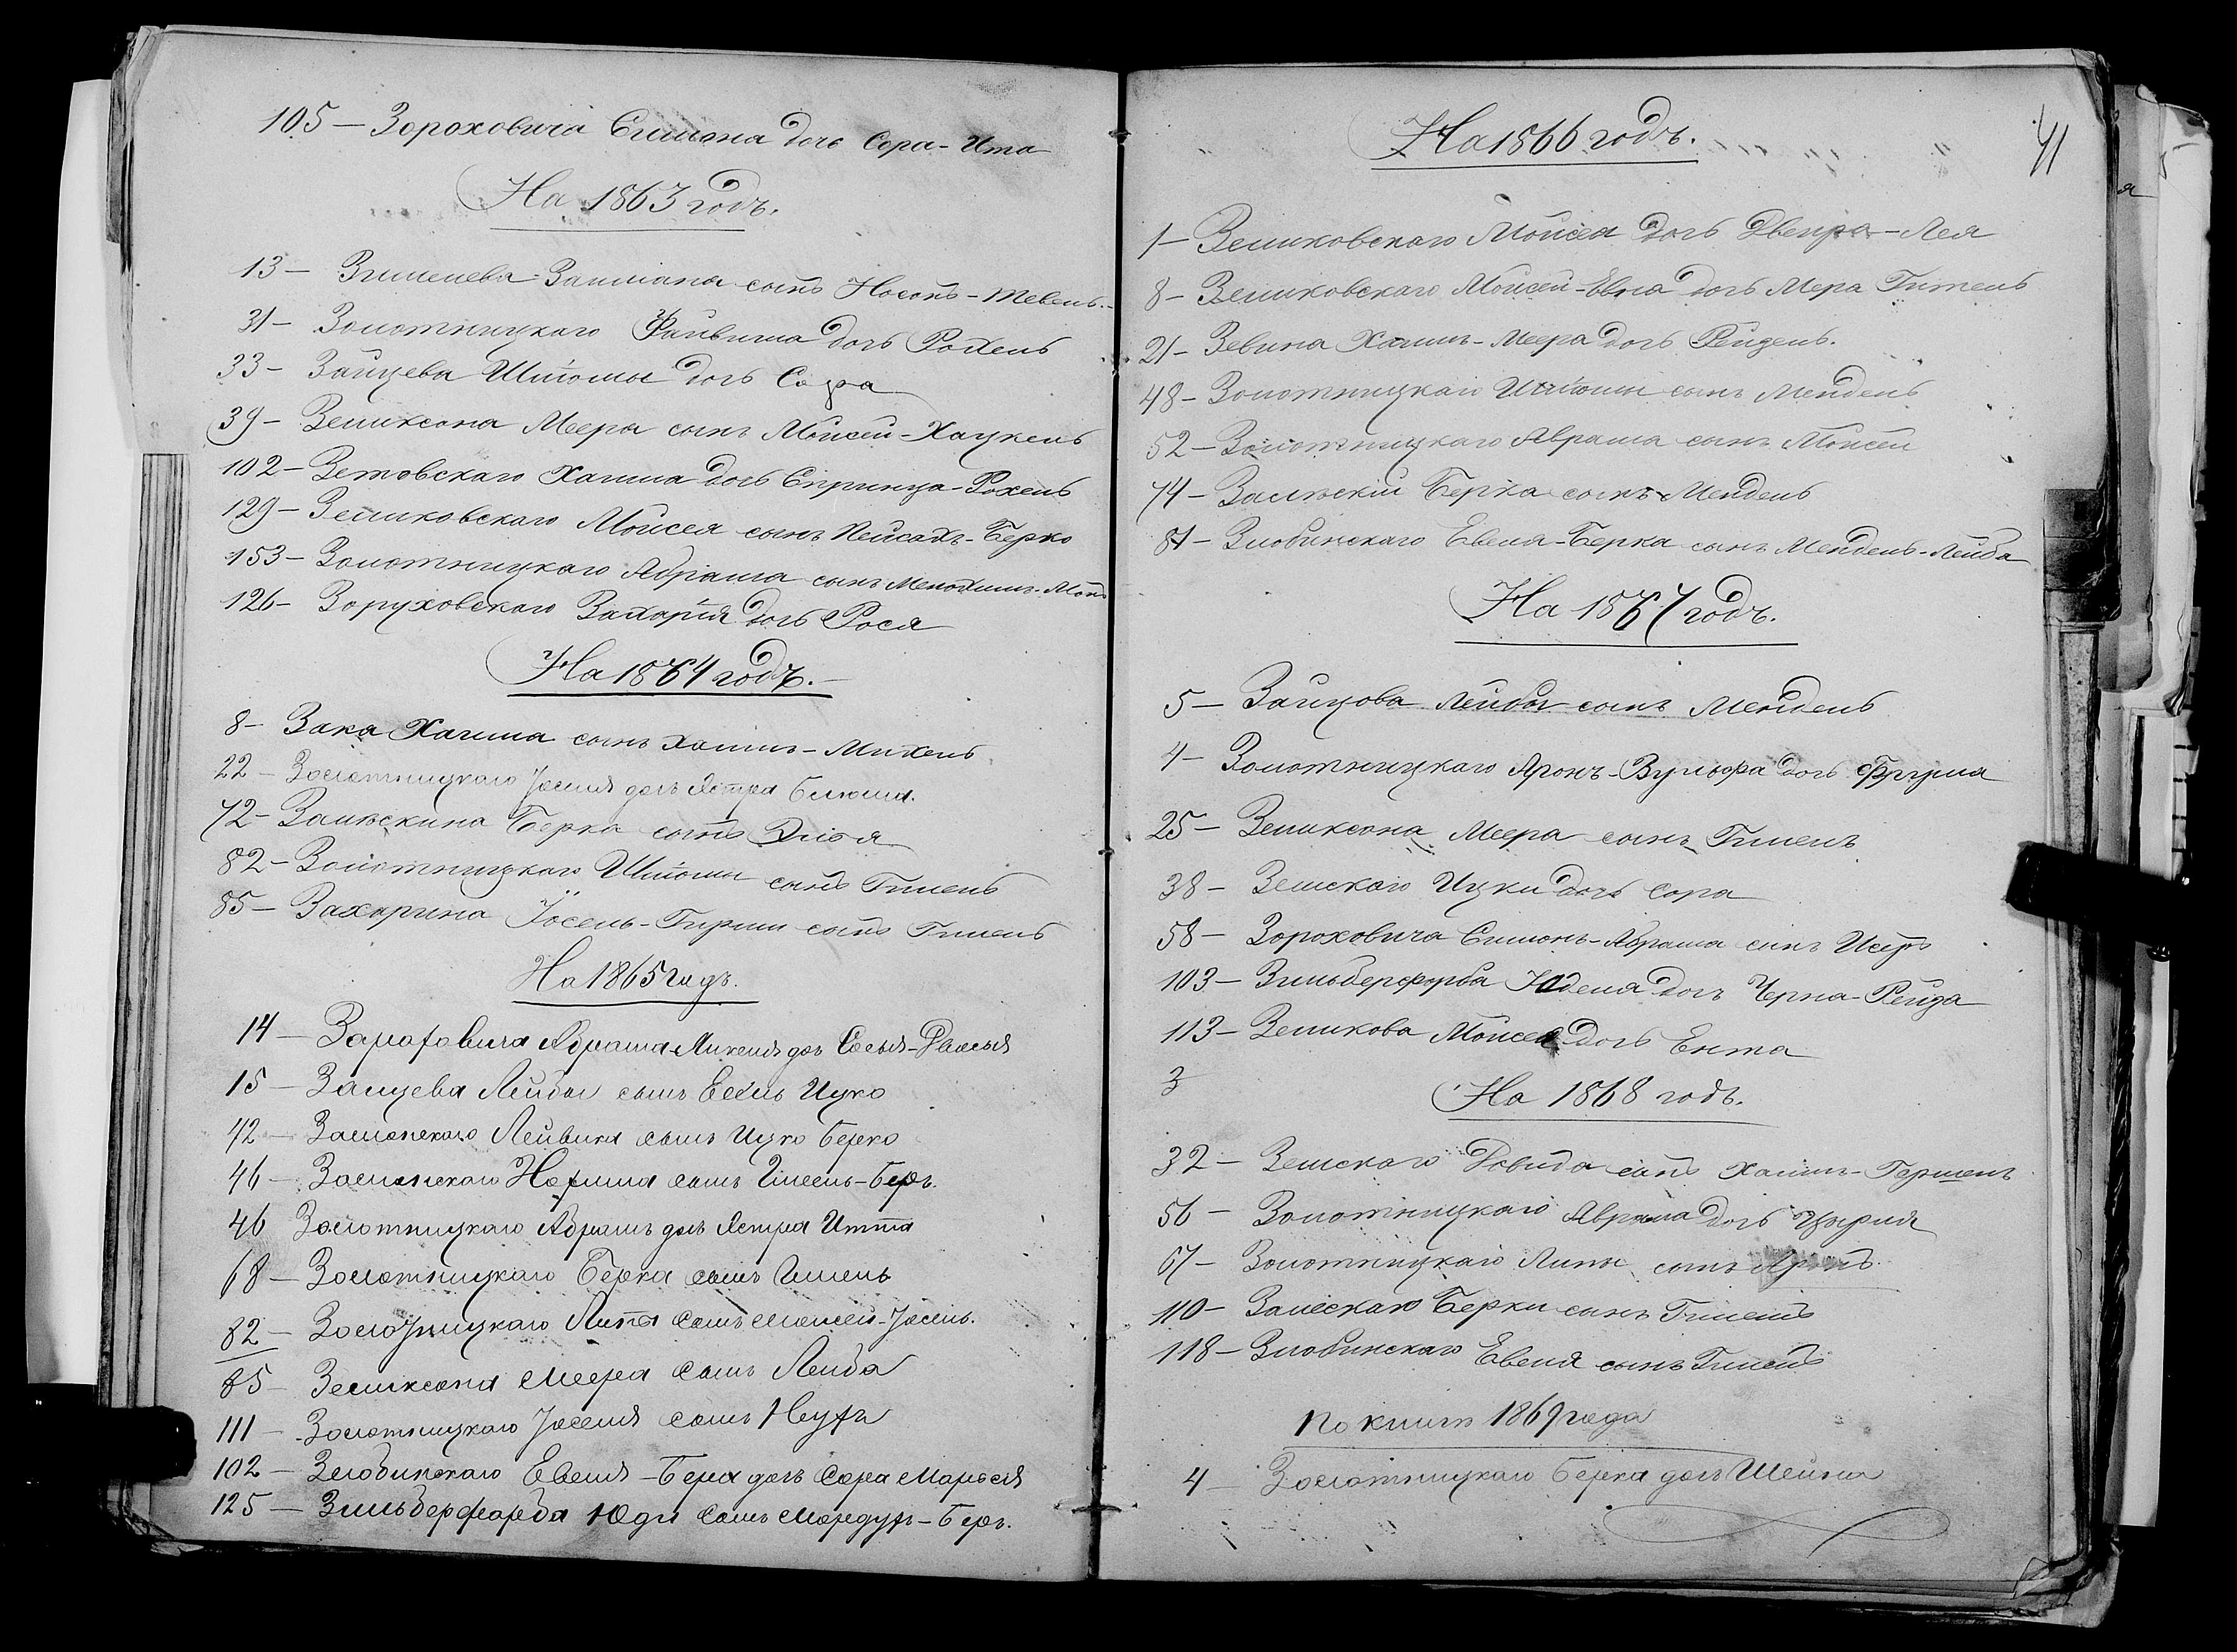 105 — Зороховича Симона дочь Сора-Ита
На 1863 годъ.
13 — Зималева Залмана сынъ Носонъ-Тевель
31 — Золотницкаго Файвиша дочь Рохель
33 — Зайцева Шлiомы дочь Сора
39 — Зеликсона Меера сынъ Мойсей-Хацкель
102 — Зетовскаго Хаима дочь Спринца-Рохель
129 — Зеликовскаго Мойсея сынъ Пейсахъ-Берко
153 — Золотницкаго Абрама сынъ
126 — Зоруховскаго Захарiя дочь Рося
На 1864 годъ.
8 — Зака Хаима сынъ Хаимъ-Михель
22 — Золотницкаго Iоселя дочь Естра
72 — Берка сынъ Элья
82 — Золотницкаго Шлiомы сынъ Гилель
85 — Захарина Iосель-Гирши сынъ Гилель
На 1865 годъ.
14 — Абрама-Михеля дочь
15 — Зайцева Лейбы сынъ Ицко
42 — Лейвика сынъ Ицко Берко
46 — Нохима сынъ Гилель-Беръ.
46 Золотницкаго Абрамъ дочь Естра Итта
68 — Золотницкаго Берка сынъ Гилель
82 — Золотницкаго Липа сынъ Мойсей-Iосель.
85 — Зеликсона Меера сынъ Лейба
111 — Золотницкаго Iоселя сынъ
102 — Злобинскаго Евеля-Бера дочь Сора
125 — Зильберфарба Юды сынъ Мордухъ-Беръ.
41
На 1866 годъ.
1 — Зеликовскаго Мойсея дочь Двейра-Лея
8 — Зеликовскаго дочь Мера Гитель
21 — Зевина Хаимъ-Меера дочь Рейзель.
48 — Золотницкаго Шлiомы сынъ Мендель
52 — Золотницкаго Абрама сынъ Мойсей
74 — Берка сынъ Мендель
81 — Злобинскаго Евеля-Берка сынъ Мендель-Лейба
На 1867 годъ.
5 — Зайцова Лейбы сынъ Мендель
4 — Золотницкаго Аронъ-Вульфа дочь Фрума
25 — Зеликсона Меера сынъ Гилель
38 — Зельскаго Ицки дочь Сора
58 — Зороховича Симонъ-Абрама сынъ
103 — Зильберфарба Юделя дочь Черна-Рейза
113 — Зеликова Мойсея дочь Ента
3
На 1868 годъ.
32 — Зельскаго Довида сынъ Хаимъ-Гершель
56 — Золотницкаго Абрама дочь
67 — Золотницкаго Липы сынъ Аронъ
110 — Залескаго Берки сынъ Гилель
118 — Злобинскаго Евеля сынъ Гилель
По книгѣ 1869 года
4 — Золотницкаго Берка дочь Шейна